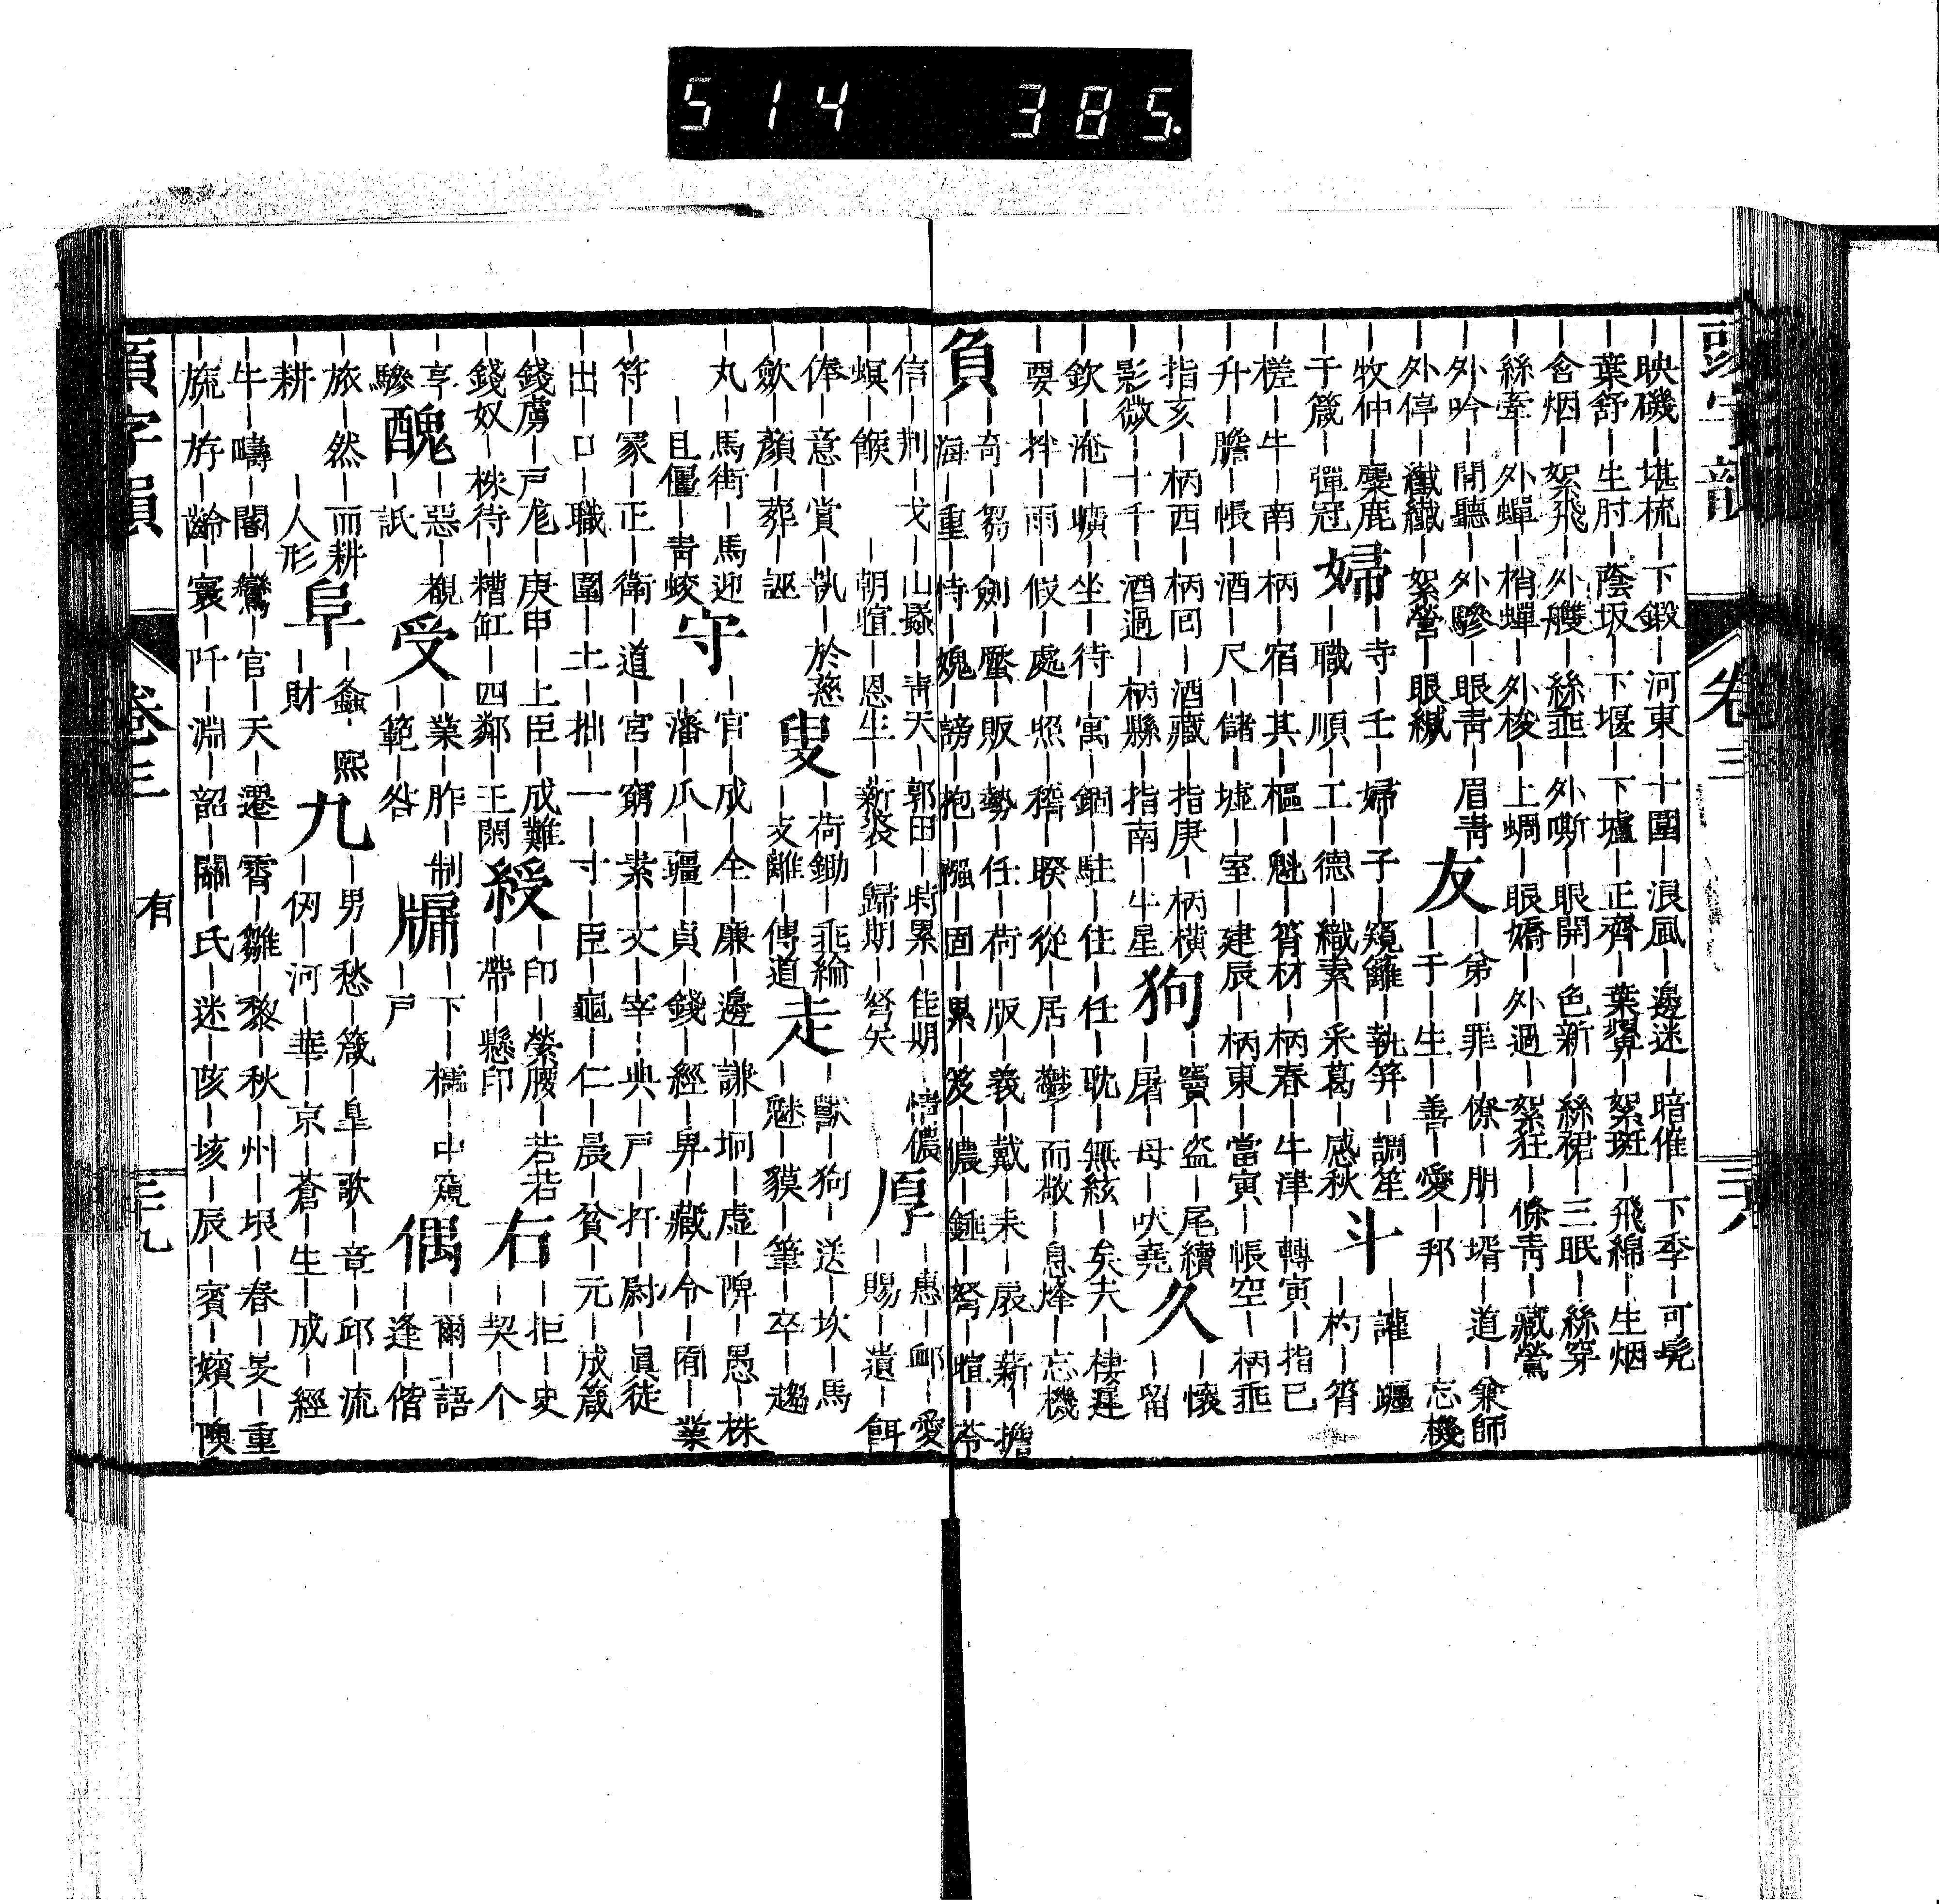 514 385.
卷三
三六
｜映磯｜堪梳｜下鍛｜河東｜十圍｜浪風｜邊迷｜暗催｜下季｜可
｜葉舒｜生肘｜蔭坂｜下堰｜下壚｜正齊｜葉｜絮斑｜飛綿｜生烟
｜含烟｜絮飛｜外艭｜絲乖｜外嘶｜眼開｜色新｜絲裙｜三眠｜絲穿
｜絲牽｜外蟬｜梢蟬｜外梭｜上蜩｜眼嬌｜外過｜絮狂｜條靑｜藏鶯
｜外吟｜開聽｜外驂｜眼靑｜眉靑 友｜弟｜罪｜僚｜朋｜壻｜道｜兼師
｜外停｜纖纖｜絮營｜眼緘 ｜于｜生｜善｜愛｜邦｜忘機
｜牧仲｜麋鹿 婦｜寺｜壬｜婦｜子｜窺籬｜執笄｜調笙 斗｜讙｜躔
｜干箴｜彈冠 ｜職｜順｜工｜德｜織素｜采葛｜感秋 ｜杓｜筲
｜槎｜牛｜南｜柄｜宿｜其｜樞｜魁｜筲材｜柄春｜牛津｜轉寅｜指已
｜升｜膽｜帳｜酒｜尺｜儲｜墟｜室｜建辰｜柄東｜當寅｜帳空｜柄乖
｜指亥｜柄西｜柄回｜酒藏｜指庚｜柄橫 狗｜竇｜盜｜尾續 久｜懷
｜影微｜十千｜酒過｜柄縣｜指南｜牛星 ｜屠｜母｜吠堯 ｜留
｜欽｜淹｜曠｜坐｜待｜寓｜錮｜駐｜住｜任｜耽｜無絃｜矣夫｜棲遲
｜要｜拌｜雨｜假｜處｜照｜稽｜暌｜從｜居｜鬱｜而敬｜息烽｜忘機
負｜奇｜芻｜劍｜蜃｜販｜勢｜任｜荷｜版｜義｜戴｜耒｜扆｜薪｜擔
｜海｜重｜恃｜媿｜謗｜抱｜襁｜固｜累｜笈｜儂｜鍾｜弩｜暄｜苓
｜信｜荆｜戈｜山蝨｜靑天｜郭田｜時累｜佳期｜情儂 厚｜惠｜卹｜愛
｜螟｜餱｜朝暄｜恩生｜新裘｜歸期｜弩矢 ｜賜｜遺｜餌
｜俸｜意｜賞｜執｜於慈 叟｜荷鋤｜乖綸 走｜獸｜狗｜送｜坂｜馬
｜斂｜顏｜葬｜誣 ｜支離｜傳道 ｜魅｜貘｜筆｜卒｜趨
｜丸｜馬街｜馬迎 守｜官｜成｜全｜廉｜邊｜謙｜坰｜虛｜陴｜愚｜株
｜且僵｜靑蛟 ｜藩｜爪｜疆｜貞｜錢｜經｜畀｜藏｜令｜囿｜業
｜符｜冢｜正｜衛｜道｜宮｜窮｜素｜文｜宰｜典｜戸｜扞｜尉｜眞｜徒
｜出｜口｜職｜圍｜土｜拙｜一｜寸｜臣｜龜｜仁｜晨｜貧｜元｜成箴
｜錢虜｜戸尨｜庚申｜上臣｜成難 綬｜印｜縈腰｜若若 右｜拒｜史
｜錢奴｜株待｜糟缸｜四鄰｜王閑 ｜帶｜懸印 ｜契｜个
｜享 醜｜惡｜覩 受｜業｜胙｜制 牖｜下｜櫺｜中窺 偶｜爾｜語
｜驂 ｜詆 ｜範｜咎 ｜戸 ｜逢｜偕
｜旅｜然｜而耕 阜｜螽｜熙 九｜男｜愁｜箴｜皐｜歌｜章｜邱｜流
｜耕｜人形 ｜財 ｜伤｜河｜華｜京｜蒼｜生｜成｜經
｜牛｜疇｜閽｜鸞｜官｜天｜遷｜霄｜雛｜黎｜秋｜州｜垠｜春｜旻｜重
｜旒｜斿｜齡｜寰｜阡｜淵｜韶｜關｜氏｜迷｜陔｜垓｜辰｜賓｜嬪｜隩
卷三
有
三九